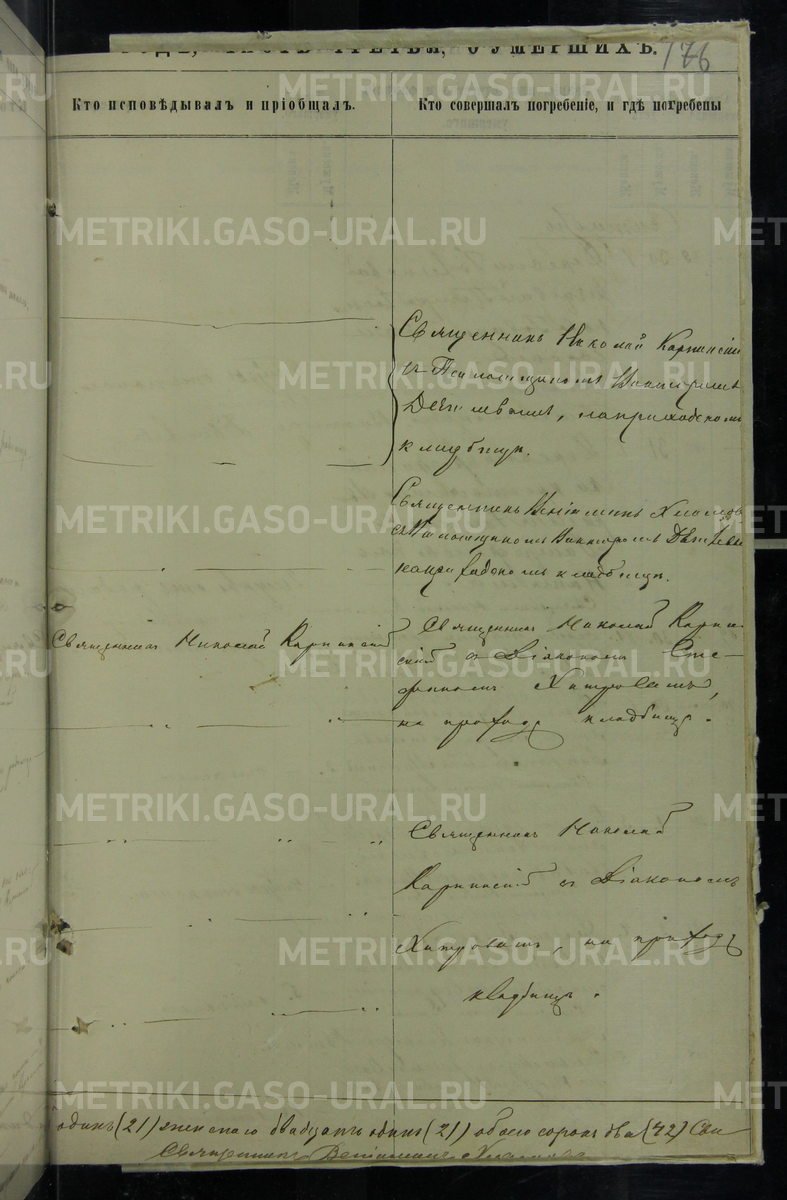 ГОДЪ, ЧАСТЬ ТРЕТЬЯ, О УМЕРШИХЪ.
176
Кто исповѣдывалъ и пріобщалъ.
Кто совершалъ погребеніе, и гдѣ погребены
Священникъ Николай Карпинскій
съ Псаломщикомъ Викторомъ
на приходскомъ
кладбищѣ.
Священникъ Веніаминъ
съ Псаломщикомъ Викторомъ
на приходскомъ кладбищѣ.
Священникъ Николай Карпинскій
Священникъ Николай Карпин
скій съ Діакономъ Сте-
фаномъ Хитровымъ,
на приход. кладбищѣ.
Священникъ Николай
Карпинскій съ Діакономъ
Хитровымъ, на приход.
кладбищѣ.
одинъ (21) женскаго двадцать одинъ (21) обоего сорокъ два (42)
Священникъ Веніаминъ
METRIKI.GASO-URAL.RU